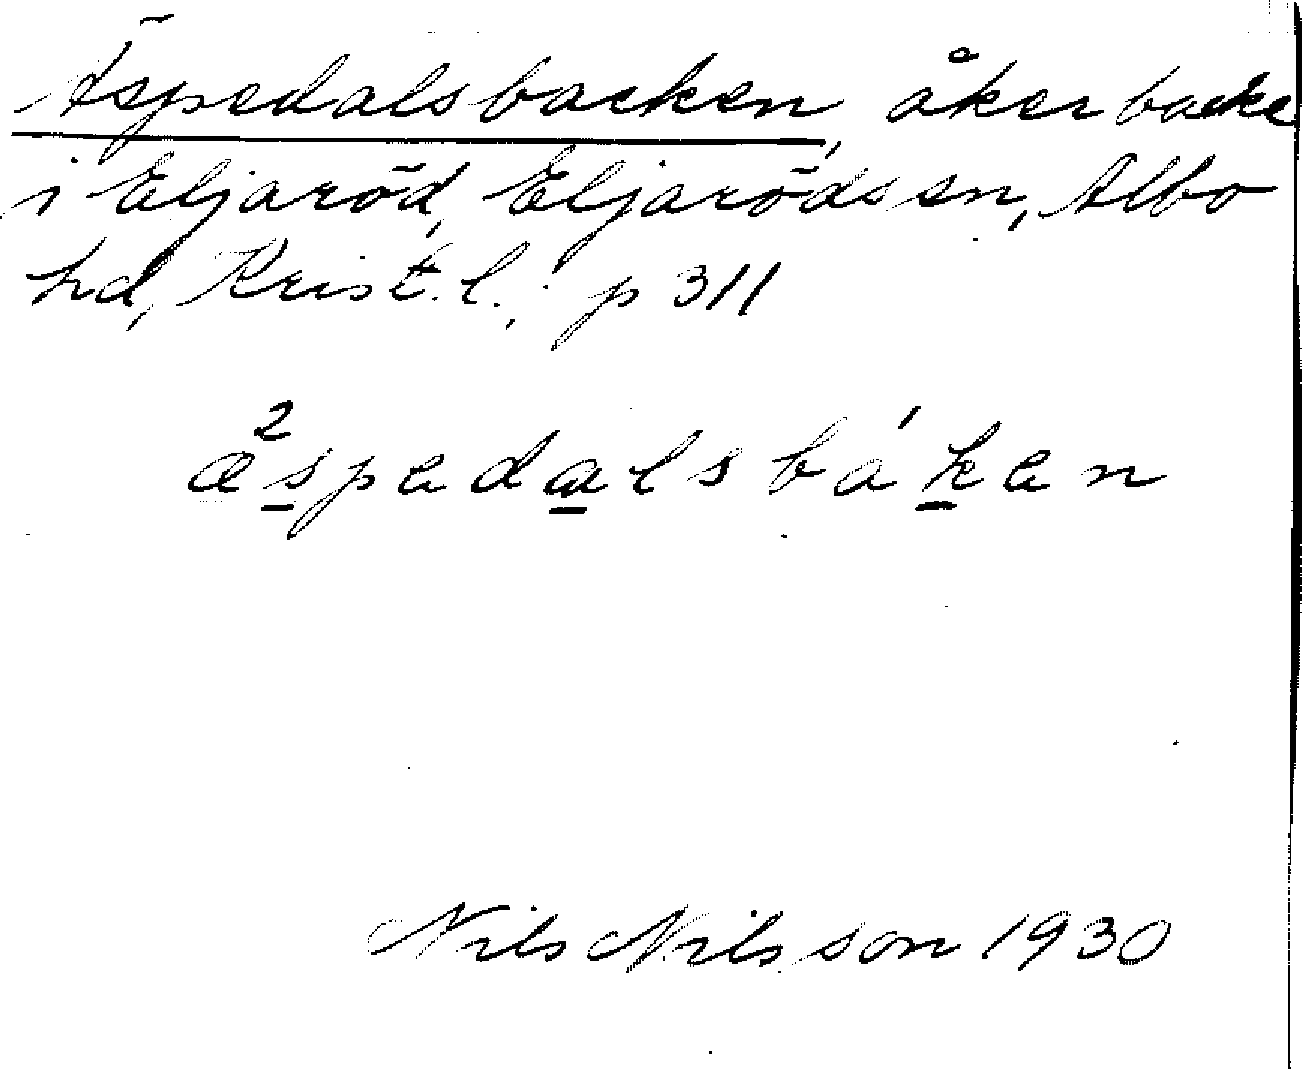 Äspedalsbacken, åkerbacke
i Eljaröd, Eljaröds sn, Albo
hd, Krist. l.; p 311
æ²spedalsbáken
Nils Nilsson 1930